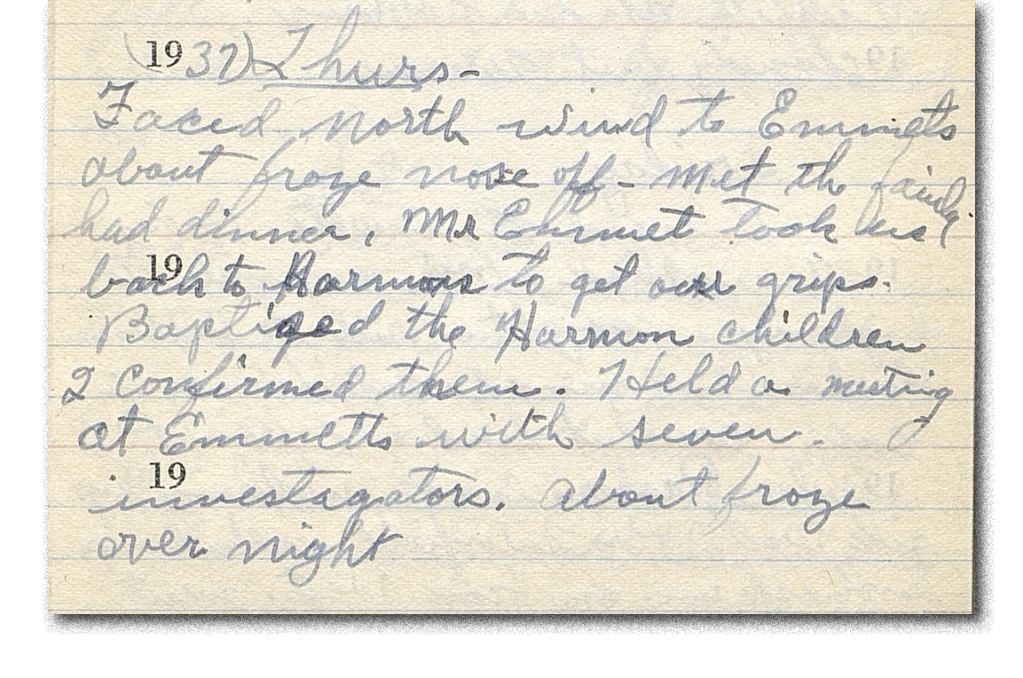 (1937) Thurs-
Faced north wind to Emmetts
about froze nose off - met the family
had dinner, Mr Emmet took us
19
back to Harmons to get our grips.
Baptized the Harmon children
& confirmed them. Held a meeting
at Emmetts with seven.
19
investagators. About froze
over night